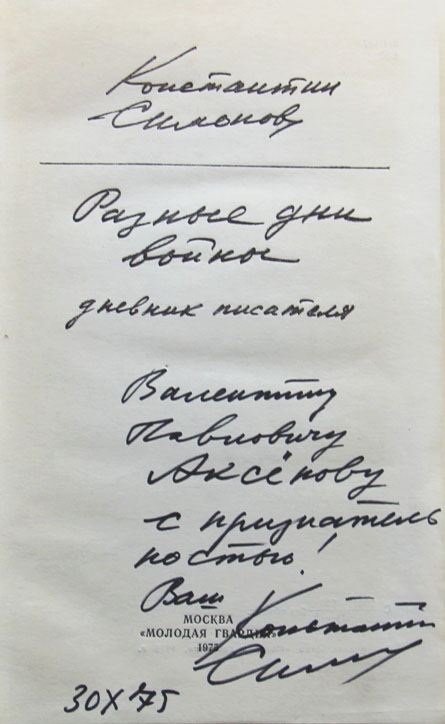 Константин
Симонов
Разные дни
войны
дневник писателя
Валентину
Павловичу
Аксёнову
с признатель
ностью!
Ваш
МОСКВА
«МОЛОДАЯ ГВАРДИЯ»
1975
Константин
Симонов
30 X 75